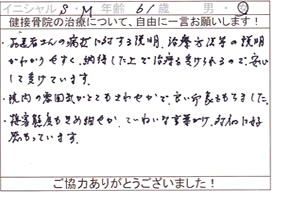 イニシャル S.M 年齢 61歳 男・女
健接骨院の治療について、自由に一言お願いします！
・応患者さんの病状に対する説明、治療方法等の説明
がわかりやすく、納得した上で治療を受けられるので、安心
して受けています。
・院内の雰囲気がとてもさわやかで、良い印象をもちました。
・接客態度もきめ細やか、ていねいな言葉かけ、対応に好
感もっています。
ご協力ありがとうございました！